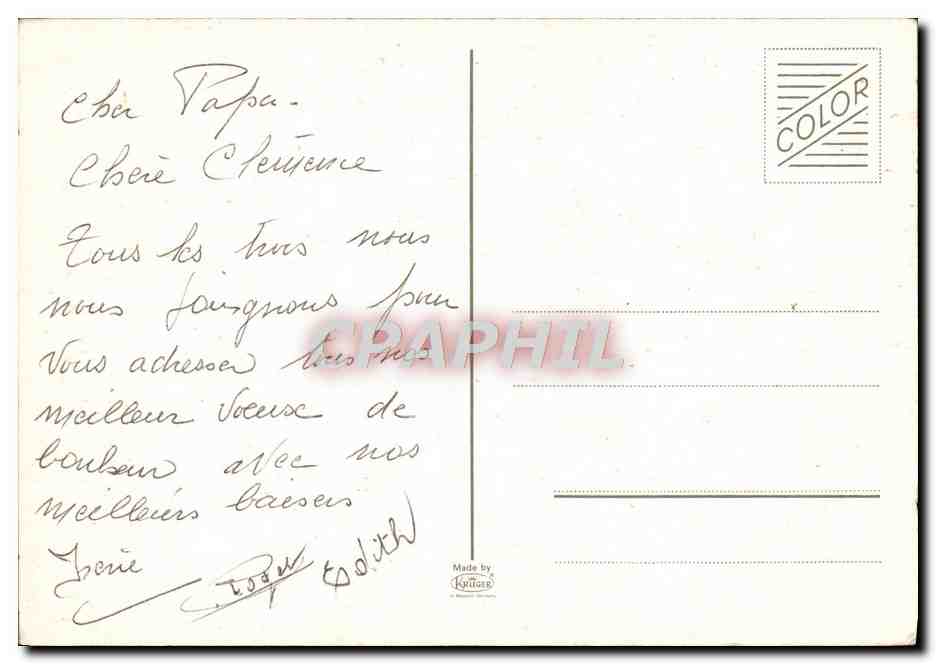 Cher Papa -
Chère Clémence
Tous les trois nous
nous joignons pour
vous adresser tous nos
meilleur voeux de
bonheur avec nos
meilleurs baisers
Irène
Edith
COLOR
CPAPHIL
Made by
KRÜGER